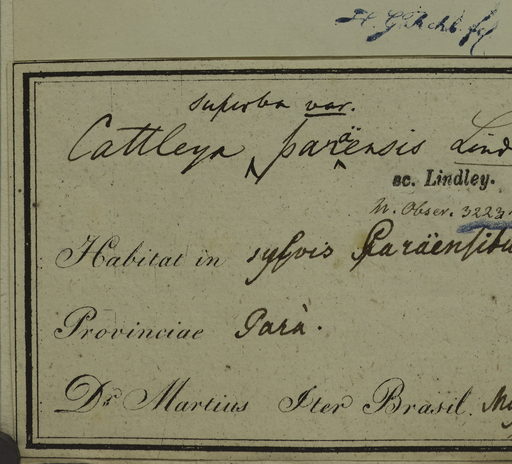 H. G. Rchb. fil
superba var.
Cattleya paraënsis Lind
sc. Lindley.
N. Obser. 3223.
Habitat in sylvis Paraënsibu
Provinciae Parà.
Dr. Martius Iter Brasil.